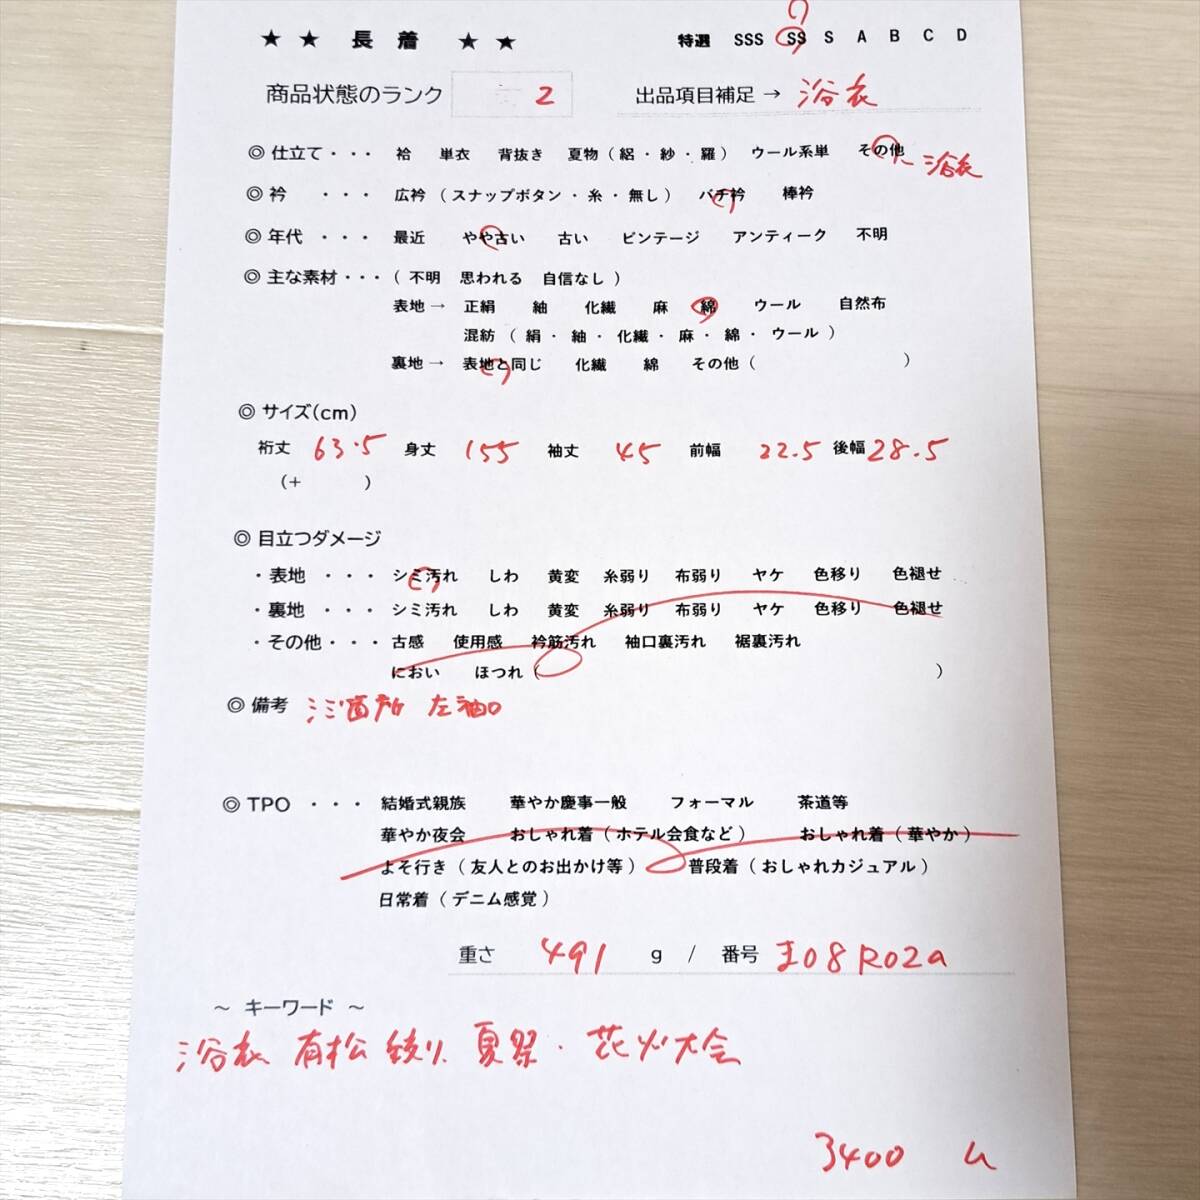 ★ ★ 長 着 ★ ★ 特選 SSS SS S A B C D
商品状態のランク 2 出品項目補足 → 浴衣
◎ 仕立て・・・ 袷 単衣 背抜き 夏物（絽・紗・羅） ウール系単 その他 浴衣
◎ 衿 ・・・ 広衿（スナップボタン・糸・無し） バチ衿 棒衿
◎ 年代 ・・・ 最近 やや古い 古い ビンテージ アンティーク 不明
◎ 主な素材・・・（ 不明 思われる 自信なし ）
表地→ 正絹 紬 化繊 麻 綿 ウール 自然布
混紡 （ 絹・紬・化繊・麻・綿・ウール ）
裏地→ 表地と同じ 化繊 綿 その他（ ）
◎ サイズ(cm)
裄丈 63.5 身丈 155 袖丈 45 前幅 22.5 後幅 28.5
（+ ）
◎ 目立つダメージ
・表地 ・・・ シミ汚れ しわ 黄変 糸弱り 布弱り ヤケ 色移り 色褪せ
・裏地 ・・・ シミ汚れ しわ 黄変 糸弱り 布弱り ヤケ 色移り 色褪せ
・その他・・・ 古感 使用感 衿筋汚れ 袖口裏汚れ 裾裏汚れ
におい ほつれ（ ）
◎ 備考 シミ箇所 左袖口
◎ TPO ・・・ 結婚式親族 華やか慶事一般 フォーマル 茶道等
華やか夜会 おしゃれ着（ホテル会食など） おしゃれ着（華やか）
よそ行き（友人とのお出かけ等） 普段着（おしゃれカジュアル）
日常着（デニム感覚）
重さ 491 g / 番号 ま08R02a
～ キーワード ～
浴衣 有松 絞り 夏祭・花火大会
3400 ム